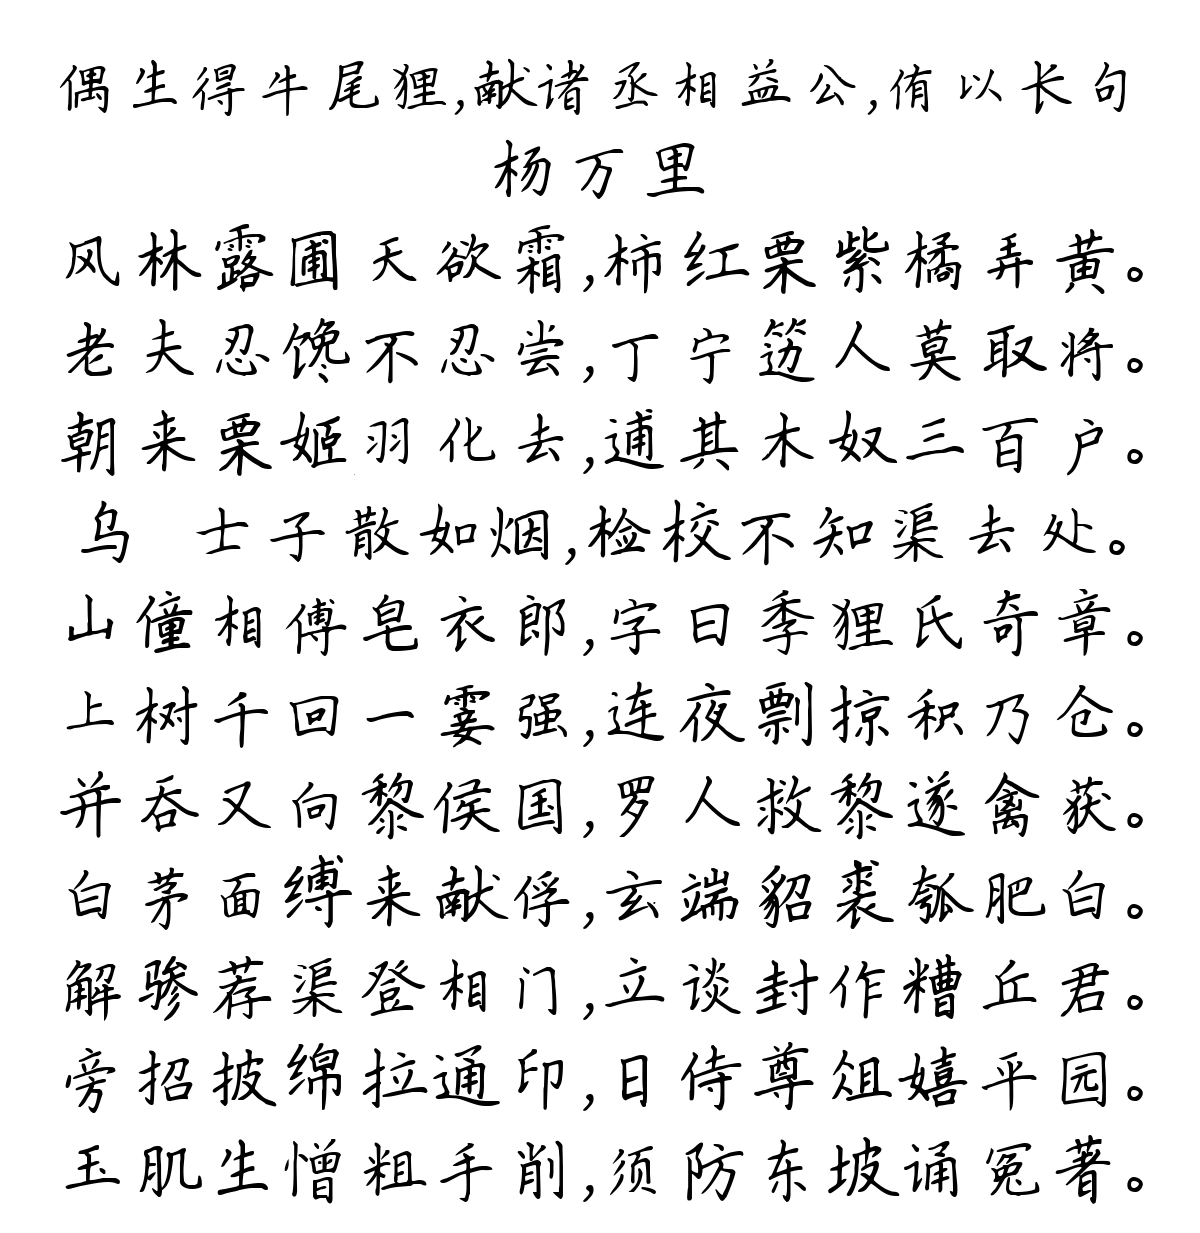 偶生得牛尾狸,献诸丞相益公,侑以长句
杨万里
风林露圃天欲霜,柿红栗紫橘弄黄。
老夫忍馋不忍尝,丁宁笾人莫取将。
朝来栗姬羽化去,逋其木奴三百户。
乌 士子散如烟,检校不知渠去处。
山僮相傅皂衣郎,字曰季狸氏奇章。
上树千回一霎强,连夜剽掠积乃仓。
并吞又向黎侯国,罗人救黎遂禽获。
白茅面缚来献俘,玄端貂裘瓠肥白。
解骖荐渠登相门,立谈封作糟丘君。
旁招披绵拉通印,日侍尊俎嬉平园。
玉肌生憎粗手削,须防东坡诵冤著。